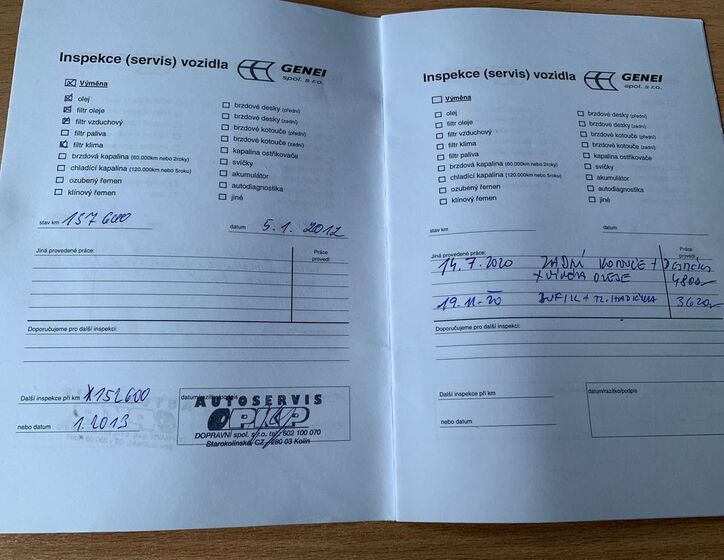 Inspekce (servis) vozidla
GENEI
spol. s r.o.
Výměna
olej
filtr oleje
filtr vzduchový
filtr paliva
filtr klima
brzdová kapalina (60.000km nebo 2roky)
chladící kapalina (120.000km nebo 5roku)
ozubený řemen
klínový řemen
brzdové desky (přední)
brzdové desky (zadní)
brzdové kotouče (přední)
brzdové kotouče (zadní)
kapalina ostřikovače
svíčky
akumulátor
autodiagnostika
jiné
stav km 137600
datum 5.1. 2012
Jiná provedené práce:
Práce
provedl
Doporučujeme pro další inspekci:
Další inspekce při km 152600
nebo datum 1.2013
datum/razítko/podpis
AUTOSERVIS
DOPRAVNÍ spol. s r.o. tel. 602 100 070
Starokolínská, CZ - 280 03 Kolín
Inspekce (servis) vozidla
GENEI
spol. s r.o.
Výměna
olej
filtr oleje
filtr vzduchový
filtr klima
filtr paliva
brzdová kapalina (60.000km nebo 2roky)
chladící kapalina (120.000km nebo 5roku)
ozubený řemen
klínový řemen
brzdové desky (přední)
brzdové desky (zadní)
brzdové kotouče (přední)
brzdové kotouče (zadní)
kapalina ostřikovače
svíčky
akumulátor
autodiagnostika
jiné
stav km
datum
Jiná provedené práce:
Práce
provedl
14.7.2020 ZADNÍ KOTOUČE +
OLEJE 4800,-
19.11.20
Doporučujeme pro další inspekci:
Další inspekce při km
nebo datum
datum/razítko/podpis